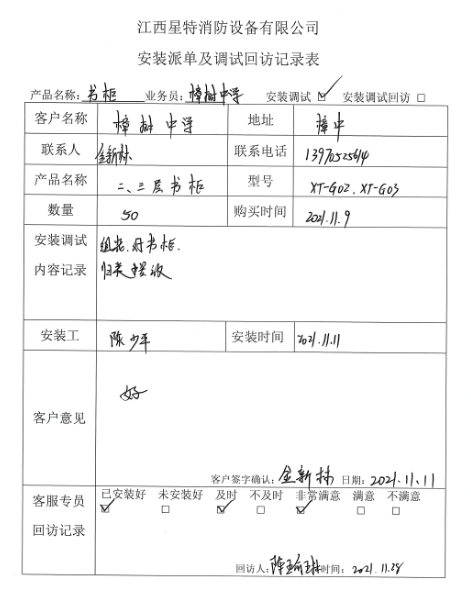 江西星特消防设备有限公司
安装派单及调试回访记录表
产品名称：书柜 业务员：樟树中学 安装调试 ☑ 安装调试回访 □
客户名称 樟树中学 地址 樟中
联系人 金新林 联系电话
产品名称 二、三层书柜 型号 XT-G02、XT-G03
数量 50 购买时间 2021.11.9
安装调试 组装、对书柜、
内容记录 归类摆放
安装工 陈少军 安装时间 2021.11.11
客户意见 好
客户签字确认：金新林 日期：2021.11.11
客服专员 已安装好 未安装好 及时 不及时 非常满意 满意 不满意
回访记录 ☑ □ ☑ □ ☑ □ □
回访人：陈 时间：2021.11.28